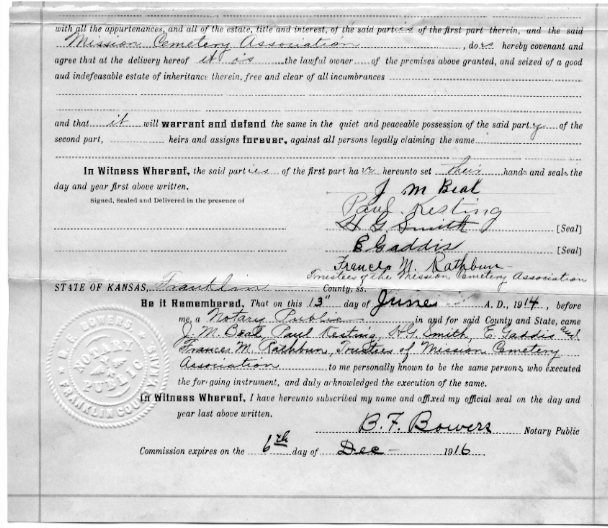 with all the appurtenances, and all of the estate, title and interest, of the said parties of the first part therein, and the said
Mission Cemetery Association, does hereby covenant and
agree that at the delivery hereof it is the lawful owner of the premises above granted, and seized of a good
and indefeasable estate of inheritance therein, free and clear of all incumbrances
and that it will warrant and defend the same in the quiet and peaceable possession of the said party of the
second part, heirs and assigns forever, against all persons legally claiming the same
In Witness Whereof, the said parties of the first part have hereunto set their hands and seals, the
day and year first above written.
Signed, Sealed and Delivered in the presence of
J M Beal
Paul Kesting
H G Smith [Seal]
E Gaddis [Seal]
Frances M. Rathbun
Trustees of the Mission Cemetery Association
STATE OF KANSAS, Franklin County, ss.
Be it Remembered, That on this 13" day of June A. D., 1914, before
me a Notary Public in and for said County and State, came
J. M. Beal, Paul Kesting, H. G. Smith, E. Gaddis and
Frances M. Rathbun, Trustees of Mission Cemetery
Association to me personally known to be the same persons who executed
the forgoing instrument, and duly acknowledged the execution of the same.
In Witness Whereof, I have hereunto subscribed my name and affixed my official seal on the day and
year last above written.
B. F. Bowers Notary Public
Commission expires on the 6th day of Dec 1916
BOWERS
NOTARY
PUBLIC
FRANKLIN COUNTY